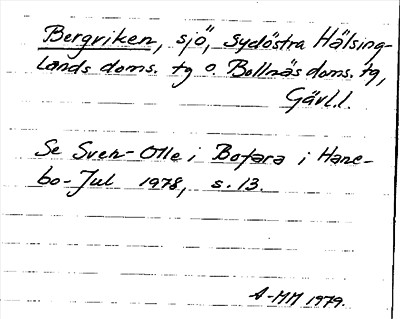 Bergviken, sjö, sydöstra Hälsing-
lands doms. tg o. Bollnäs doms. tg,
Gävl.l.
Se Sven-Olle i Bofara i Hane-
bo-Jul 1978, s. 13.
A-MM 1979.